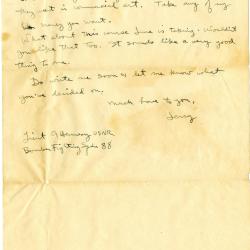 art is commercial art. Take any of my
money you want.
What about this course June is taking. Wouldn't
you like that too. It sounds like a very good
thing to me.
Do write me soon & let me know what
you've decided on.
Much love to you,
Jerry
Lieut J Hennessy USNR
Bomber Fighting Sqdn 88